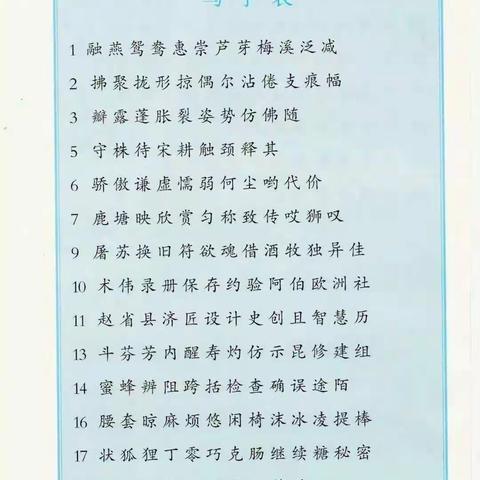 写字表
1 融燕鸳鸯惠崇芦芽梅溪泛减
2 拂聚拢形掠偶尔沾倦支痕幅
3 瓣露蓬胀裂姿势仿佛随
5 守株待宋耕触颈释其
6 骄傲谦虚懦弱何尘哟代价
7 鹿塘映欣赏匀称致传哎狮叹
9 屠苏换旧符欲魂借酒牧独异佳
10 术伟录册保存约验阿伯欧洲社
11 赵省县济匠设计史创且智慧历
13 斗芬芳内醒寿灼仿示昆修建组
14 蜜蜂辨阻跨括检查确误途陌
16 腰套晾麻烦悠闲椅沫冰凌提棒
17 状狐狸丁零巧克肠继续糖秘密